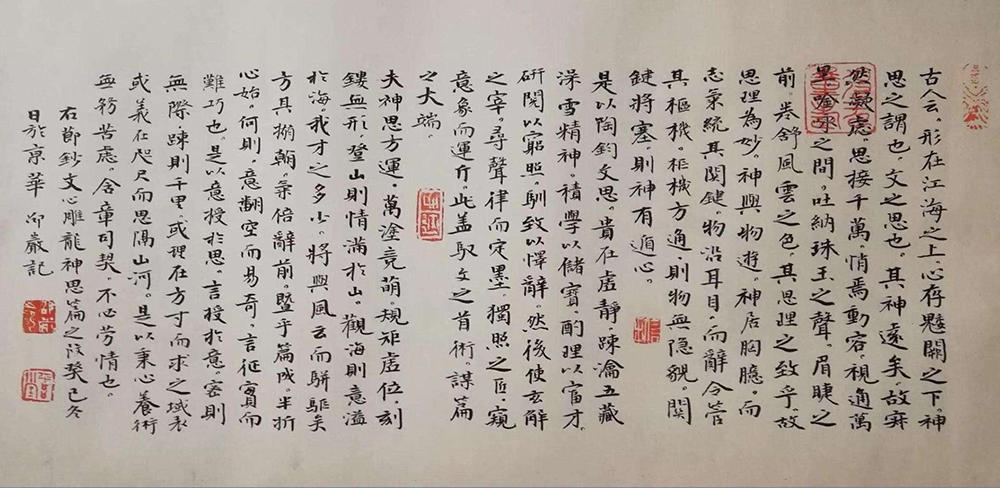 古人云。形在江海之上。心存魏闕之下。神
思之謂也。文之思也。其神遠矣。故寂
然凝慮。思接千萬。悄焉動容。視通萬
里。吟咏之間。吐納珠玉之聲。眉睫之
前。卷舒風雲之色。其思理之致乎。故
思理為妙。神與物遊。神居胸臆。而
志氣統其關鍵。物沿耳目。而辭令管
其樞機。樞機方通。則物無隱貌。關
鍵將塞。則神有遁心。
是以陶鈞文思。貴在虛靜。疎瀹五藏
澡雪精神。積學以儲寶。酌理以富才。
研閱以窮照。馴致以懌辭。然後使玄解
之宰。尋聲律而定墨。獨照之匠。窺
意象而運斤。此盖馭文之首術。謀篇
之大端
夫神思方運。萬塗竞萌。規矩虛位。刻
鏤無形。登山則情滿於山。觀海則意溢
於海。我才之多少。將與風云而駢驅矣
方其搦翰。氣倍辭前。暨乎篇成。半折
心始。何則。意翻空而易奇。言徵實而
難巧也。是以意授於思。言授於意。密則
無際。疎則千里。或理在方寸而求之域表
或義在咫尺而思隔山河。是以秉心養術
無務苦慮。含章司契。不心勞情也。
右節鈔文心雕龍神思篇之段癸已冬
日於京華 巖記